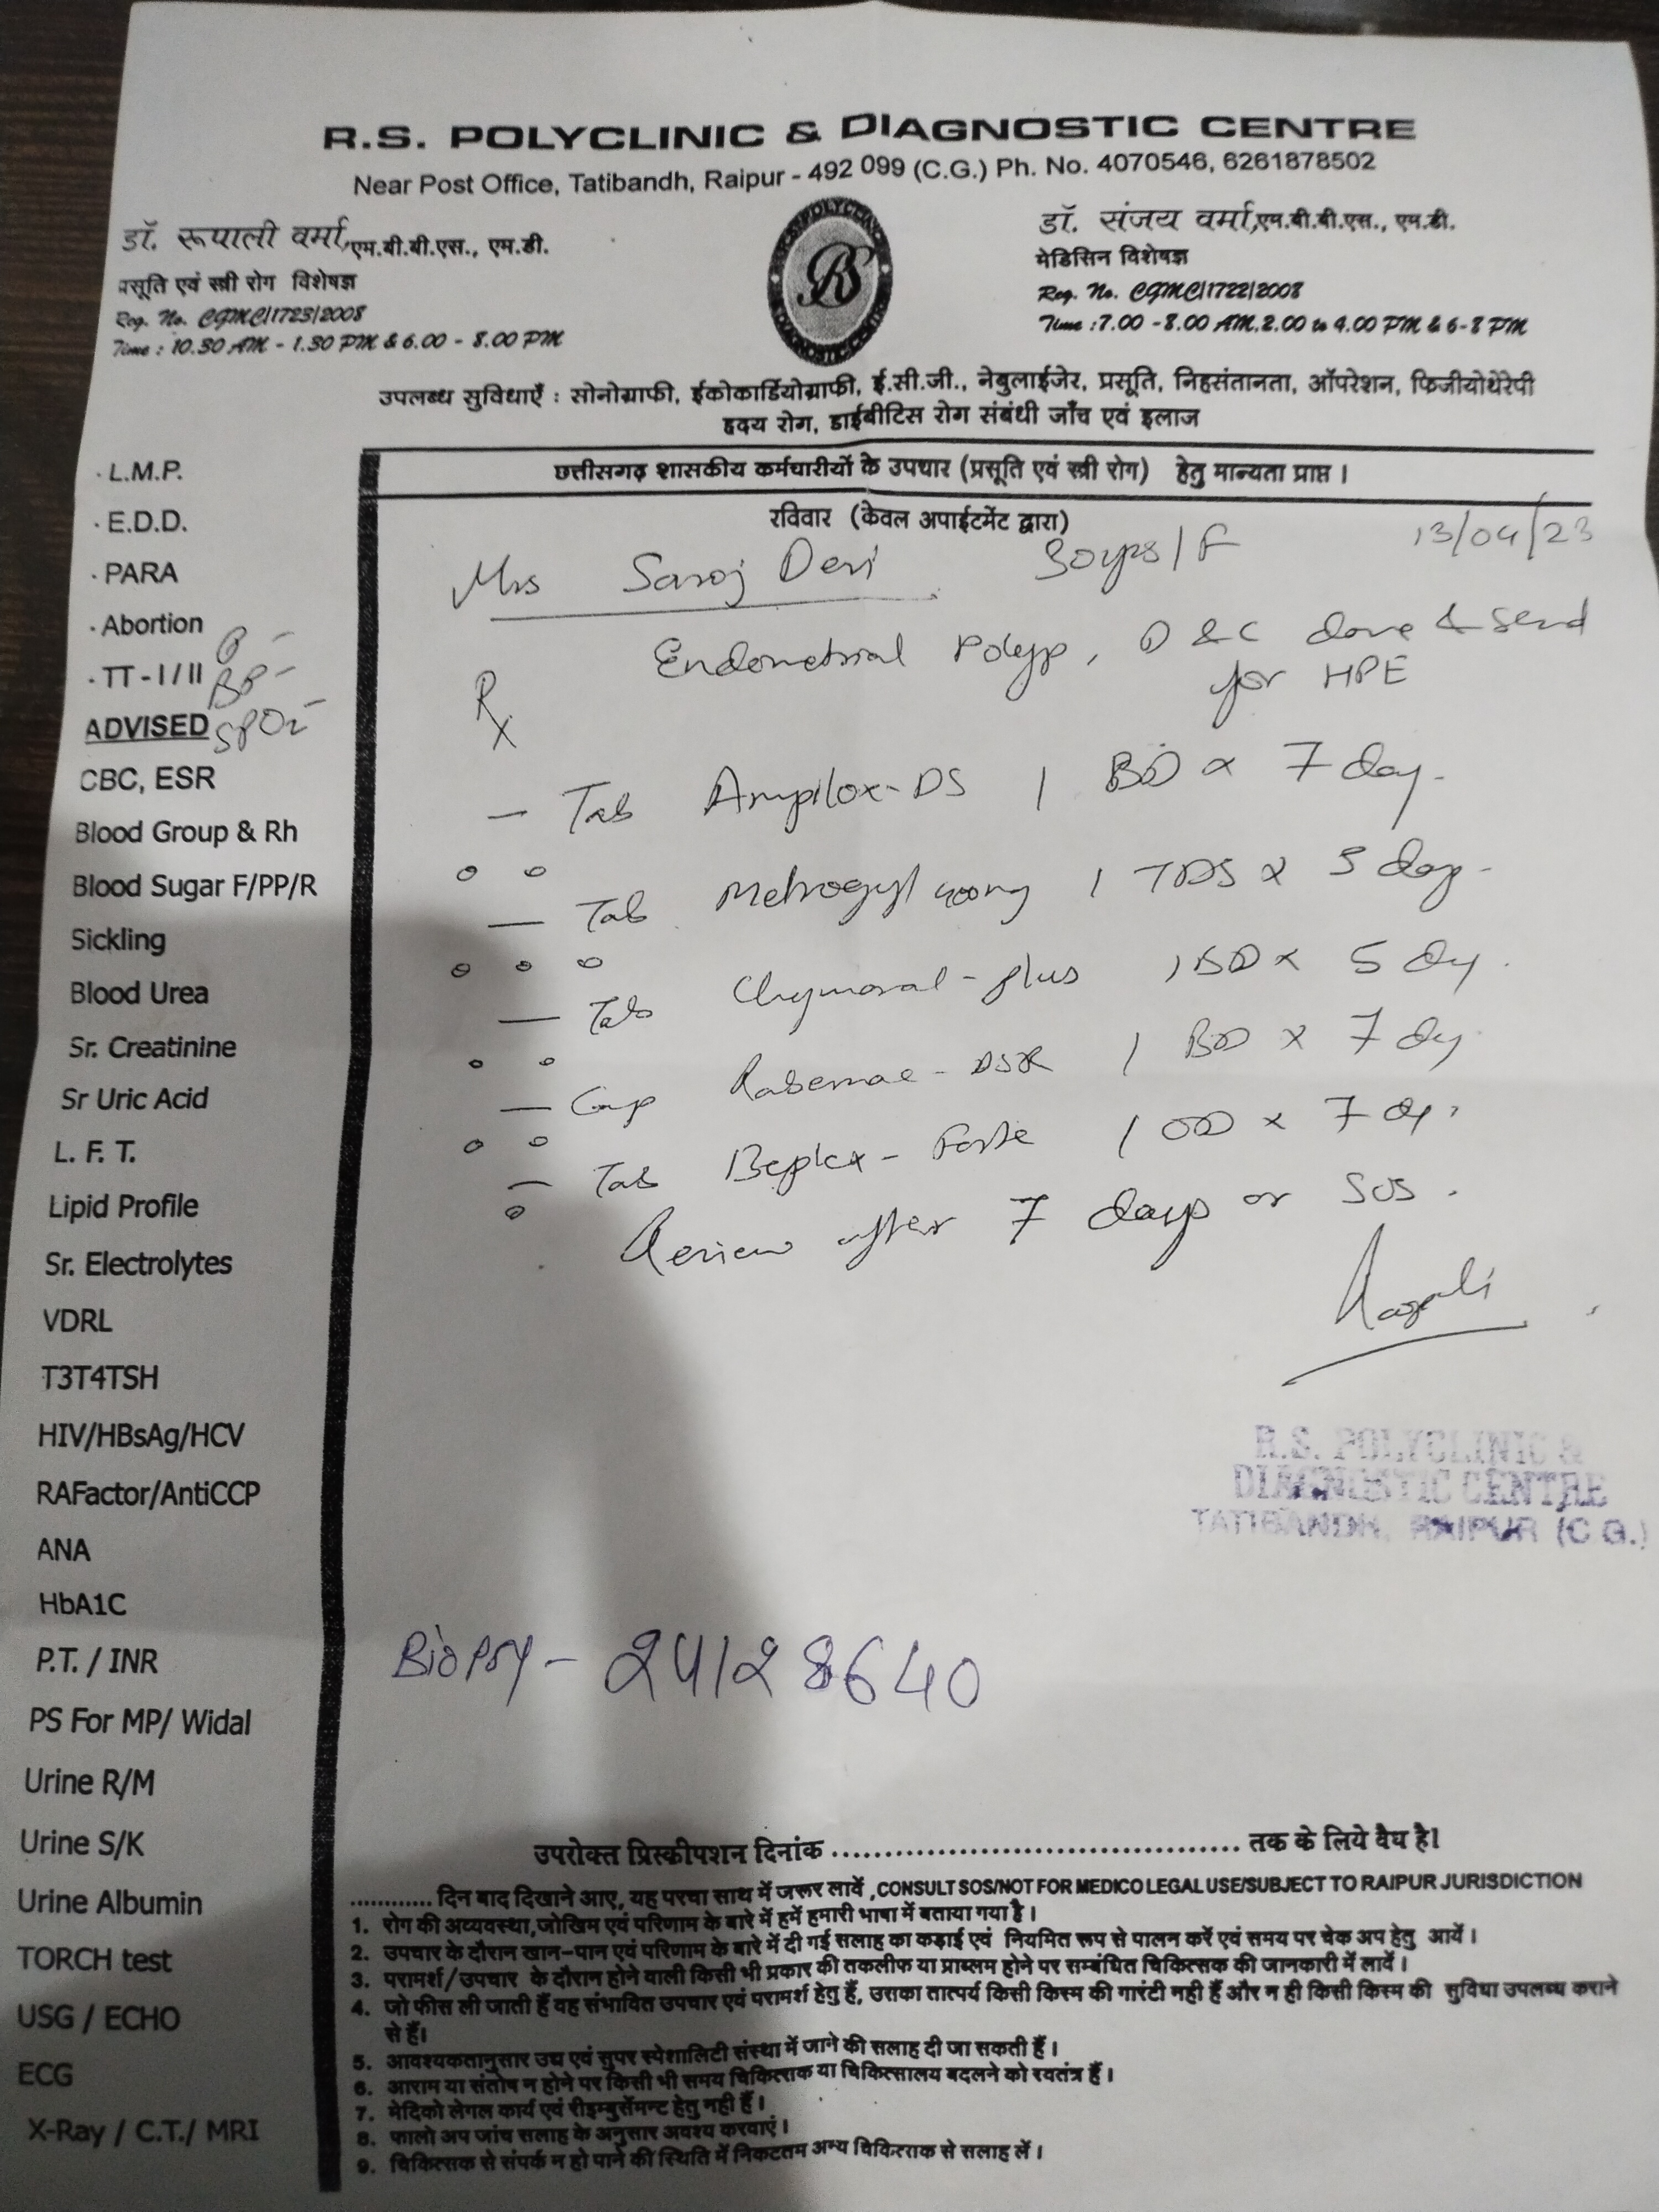 R.S. POLYCLINIC & DIAGNOSTIC CENTRE
Near Post Office, Tatibandh, Raipur - 492 099 (C.G.) Ph. No. 4070546, 6261878502
डॉ. रूपाली वर्मा, एम.बी.बी.एस., एम.डी.
प्रसूति एवं स्त्री रोग विशेषज्ञ
Reg. No. CGMC/1723/2008
Time : 10.30 AM - 1.30 PM & 6.00 - 8.00 PM
RS
डॉ. संजय वर्मा, एम.बी.बी.एस., एम.डी.
मेडिसिन विशेषज्ञ
Reg. No. CGMC/1722/2008
Time : 7.00 - 8.00 AM, 2.00 to 4.00 PM & 6-8 PM
उपलब्ध सुविधाएँ : सोनोग्राफी, ईकोकार्डियोग्राफी, ई.सी.जी., नेबुलाईजेर, प्रसूति, निहसंतानता, ऑपरेशन, फिजीयोथेरेपी
ह्रदय रोग, डाईबीटिस रोग संबंधी जाँच एवं इलाज
छत्तीसगढ़ शासकीय कर्मचारीयों के उपचार (प्रसूति एवं स्त्री रोग) हेतु मान्यता प्राप्त ।
रविवार (केवल अपाईटमेंट द्वारा)
· L.M.P.
· E.D.D.
· PARA
· Abortion
· TT - I / II
BP -
ADVISED SPO2 -
CBC, ESR
Blood Group & Rh
Blood Sugar F/PP/R
Sickling
Blood Urea
Sr. Creatinine
Sr Uric Acid
L. F. T.
Lipid Profile
Sr. Electrolytes
VDRL
T3T4TSH
HIV/HBsAg/HCV
RAFactor/AntiCCP
ANA
HbA1C
P.T. / INR
PS For MP/ Widal
Urine R/M
Urine S/K
Urine Albumin
TORCH test
USG / ECHO
ECG
X-Ray / C.T./ MRI
13/04/23
Mrs Saroj Devi 30yrs/F
Endometrial Polyp, D & C done & send
for HPE
Rx
— Tab Ampilox-DS 1 BD x 7 day.
— Tab Metrogyl 400mg 1 TDS x 5 day.
— Tab Chymoral-plus 1 BD x 5 dy.
— Cap Rabemac-DSR 1 BD x 7 dy
— Tab Beplex-Forte 1 OD x 7 dy.
Review after 7 days or SOS.
Rupali
R.S. POLYCLINIC &
DIAGNOSTIC CENTRE
TATIBANDH, RAIPUR (C.G.)
Biopsy - 24128640
उपरोक्त प्रिस्क्रीपशन दिनांक ........................................ तक के लिये वैध है।
............ दिन बाद दिखाने आए, यह परचा साथ में जरूर लावें ,CONSULT SOS/NOT FOR MEDICO LEGAL USE/SUBJECT TO RAIPUR JURISDICTION
1. रोग की अव्यवस्था,जोखिम एवं परिणाम के बारे में हमें हमारी भाषा में बताया गया है ।
2. उपचार के दौरान खान-पान एवं परिणाम के बारे में दी गई सलाह का कड़ाई एवं नियमित रूप से पालन करें एवं समय पर चेक अप हेतु आयें ।
3. परामर्श/उपचार के दौरान होने वाली किसी भी प्रकार की तकलीफ या प्राब्लम होने पर सम्बंधित चिकित्सक की जानकारी में लावें ।
4. जो फीस ली जाती हैं वह संभावित उपचार एवं परामर्श हेतु हैं, उसका तात्पर्य किसी किस्म की गारंटी नही हैं और न ही किसी किस्म की सुविधा उपलब्ध कराने
से हैं।
5. आवश्यकतानुसार उच्च एवं सुपर स्पेशालिटी संस्था में जाने की सलाह दी जा सकती हैं ।
6. आराम या संतोष न होने पर किसी भी समय चिकित्सक या चिकित्सालय बदलने को स्वतंत्र हैं ।
7. मेदिको लेगल कार्य एवं रीइम्बुर्सेमन्ट हेतु नही हैं ।
8. फालो अप जांच सलाह के अनुसार अवश्य करवाएं ।
9. चिकित्सक से संपर्क न हो पाने की स्थिति में निकटतम अन्य चिकित्सक से सलाह लें ।